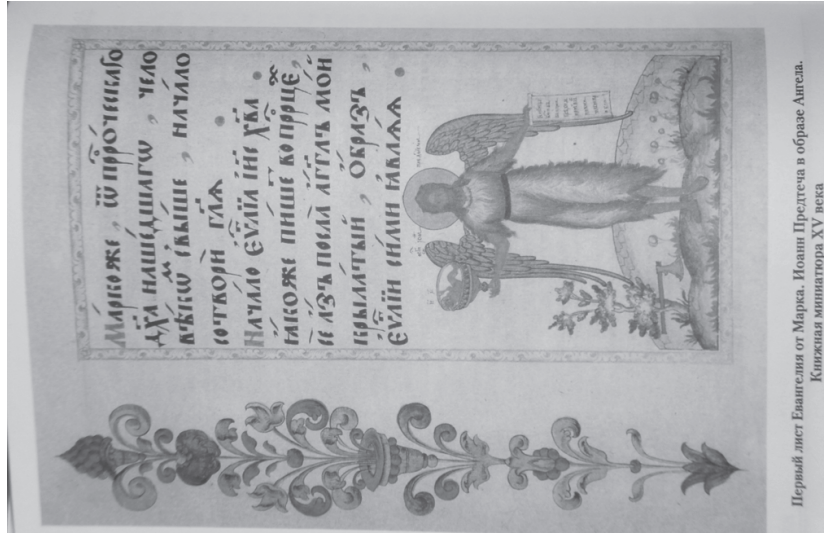 Марко же, ѿ прⷪ҇рочеⷭ҇каго
дх҃а нашедшагѡ, чело
вѣкѡⷨ свыше, начало
сотвори гл҃ѧ
Начало еѵⷢ҇лїа іи҃с хв҃а.
ꙗкоже пише во прⷪ҇рцѣⷯ,
се азъ послⷧ҇ аггл҃ъ мои
крылатыи, образъ,
еѵⷢ҇лїи сиⷨ ꙗвлѧѧ
Первый лист Евангелия от Марка. Иоанн Предтеча в образе Ангела.
Книжная миниатюра XV века